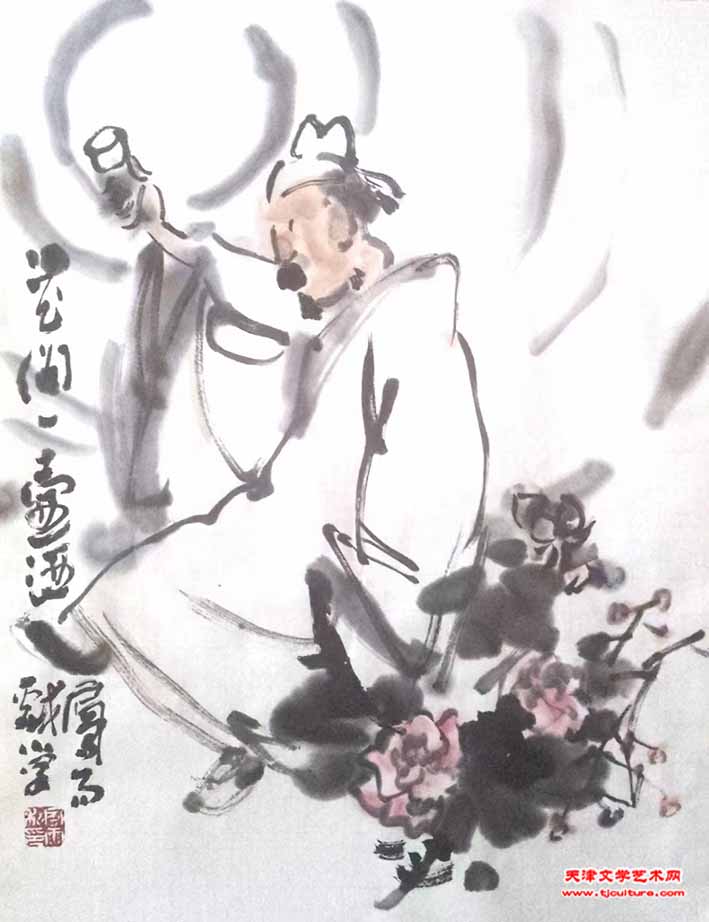 花间一壶酒
凤雨
戏学
天津文学艺术网
www.tjculture.com